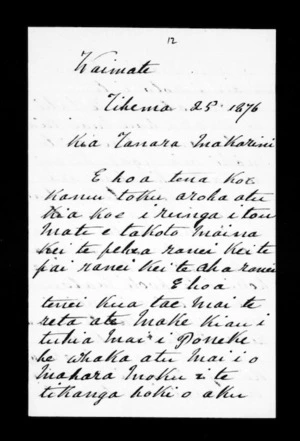 12
Waimate
Tihema 25 1876
Kia Tanara Makarini
E hoa tena koe
kanui toku aroha atu
kia koe i runga i tou
mate e takoto maina
kei te pehea ranei kei te
pai ranei kei te aha ranei
E hoa
tenei kua tae mai te
reta a te Make kia au i
tuhia mai i Poneke
he whaka atu mai i o
mahara moku i te
tikanga hoki o aku